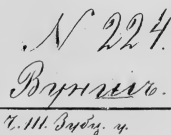 № 224.
Вуничъ.
Ч. III. Зубц. у.